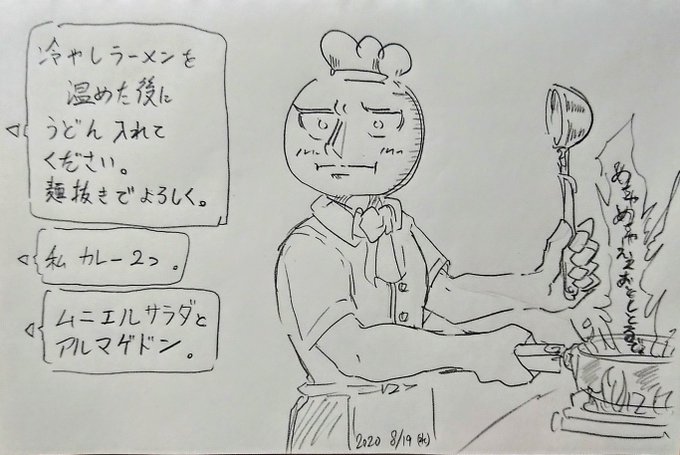 冷やしラーメンを
温めた後に
うどん入れて
ください。
麺抜きでよろしく。
私 カレー2つ。
ムニエルサラダと
アルマゲドン。
めちゃめちゃええおとしとるで
2020 8/19(水)